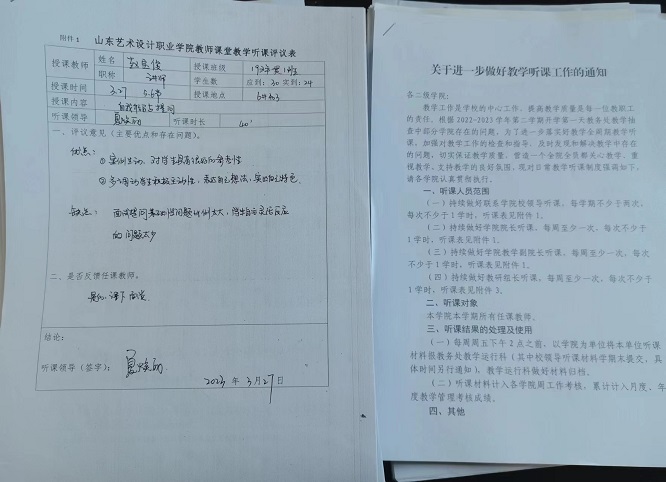 附件1 山东艺术设计职业学院教师课堂教学听课评议表
授课教师 姓名 授课班级
职称 讲师 学生数 应到：30 实到：24
授课时间 3.27 5.6节 授课地点
授课内容 自我介绍与提问
听课领导 听课时长 40'
一、评议意见（主要优点和存在问题）。
优点：
① 案例生动、对学生具有很好的参考性
② 多个同学主动性，表达自己想法，突出自己特色。
缺点： 面试提问基础性问题比例太大，
的问题太少
二、是否反馈任课教师。
是的 课下
结论：
听课领导（签字）：
2023 年 3月27日
关于进一步做好教学听课工作的通知
各二级学院：
教学工作是学校的中心工作，提高教学质量是每一位教职工
的责任。根据2022-2023学年第二学期开学第一天教务处教学检
查中部分学院存在的问题，为了进一步落实好教学全周期教学听
课，加强对教学工作的检查和指导，及时发现和解决教学中存在
的问题，切实保证教学质量，营造一个全院全员都关心教学、重
视教学、支持教学的良好氛围，现对日常教学听课制度强调如下，
请各学院认真贯彻执行。
一、听课人员范围
（一）持续做好联系学院校领导听课，每学期不少于两次，
每次不少于1学时，听课表见附件1。
（二）持续做好学院院长听课，每周至少一次，每次不少于
1学时，听课表见附件1。
（三）持续做好学院教学副院长听课，每周至少一次，每次
不少于1学时，听课表见附件1。
（四）持续做好教研组长听课，每周至少一次，每次不少于
1学时，听课表见附件3。
二、听课对象
本学院本学期所有任课教师。
三、听课结果的处理及使用
（一）每周周五下午2点之前，以学院为单位将本单位听课
材料报教务处教学运行科（其中校领导听课材料学期末提交，具
体时间另行通知），教学运行科做好材料归档。
（二）听课材料计入各学院周工作考核，累计计入月度、年
度教学管理考核成绩。
四、其他